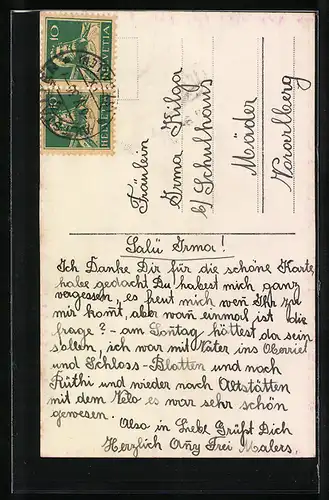 HELVETIA 10
HELVETIA 10
Fräulein
Irma Kilga
b/ Schulhaus
Mäder
Vorarlberg
Salü Irma!
Ich Danke Dir für die schöne Karte
habe gedacht Du habest mich ganz
vergessen, es freut mich wen Ihr zu
mir komt, aber wan einmal ist die
frage? - am Sontag höttest da sein
sollen, ich war mit Vater ins Oberriet
und Schloss-Blatten und nach
Rüthi und wieder nach Altstätten
mit dem Velo es war sehr schön
gewesen.
Also in Liebe Grüßt Dich
Herzlich Frei Malers,